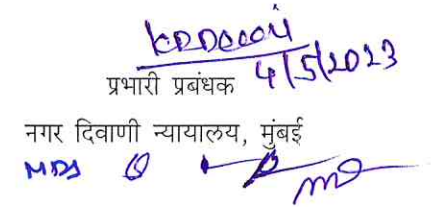 4/5/2023
प्रभारी प्रबंधक
नगर दिवाणी न्यायालय, मुंबई